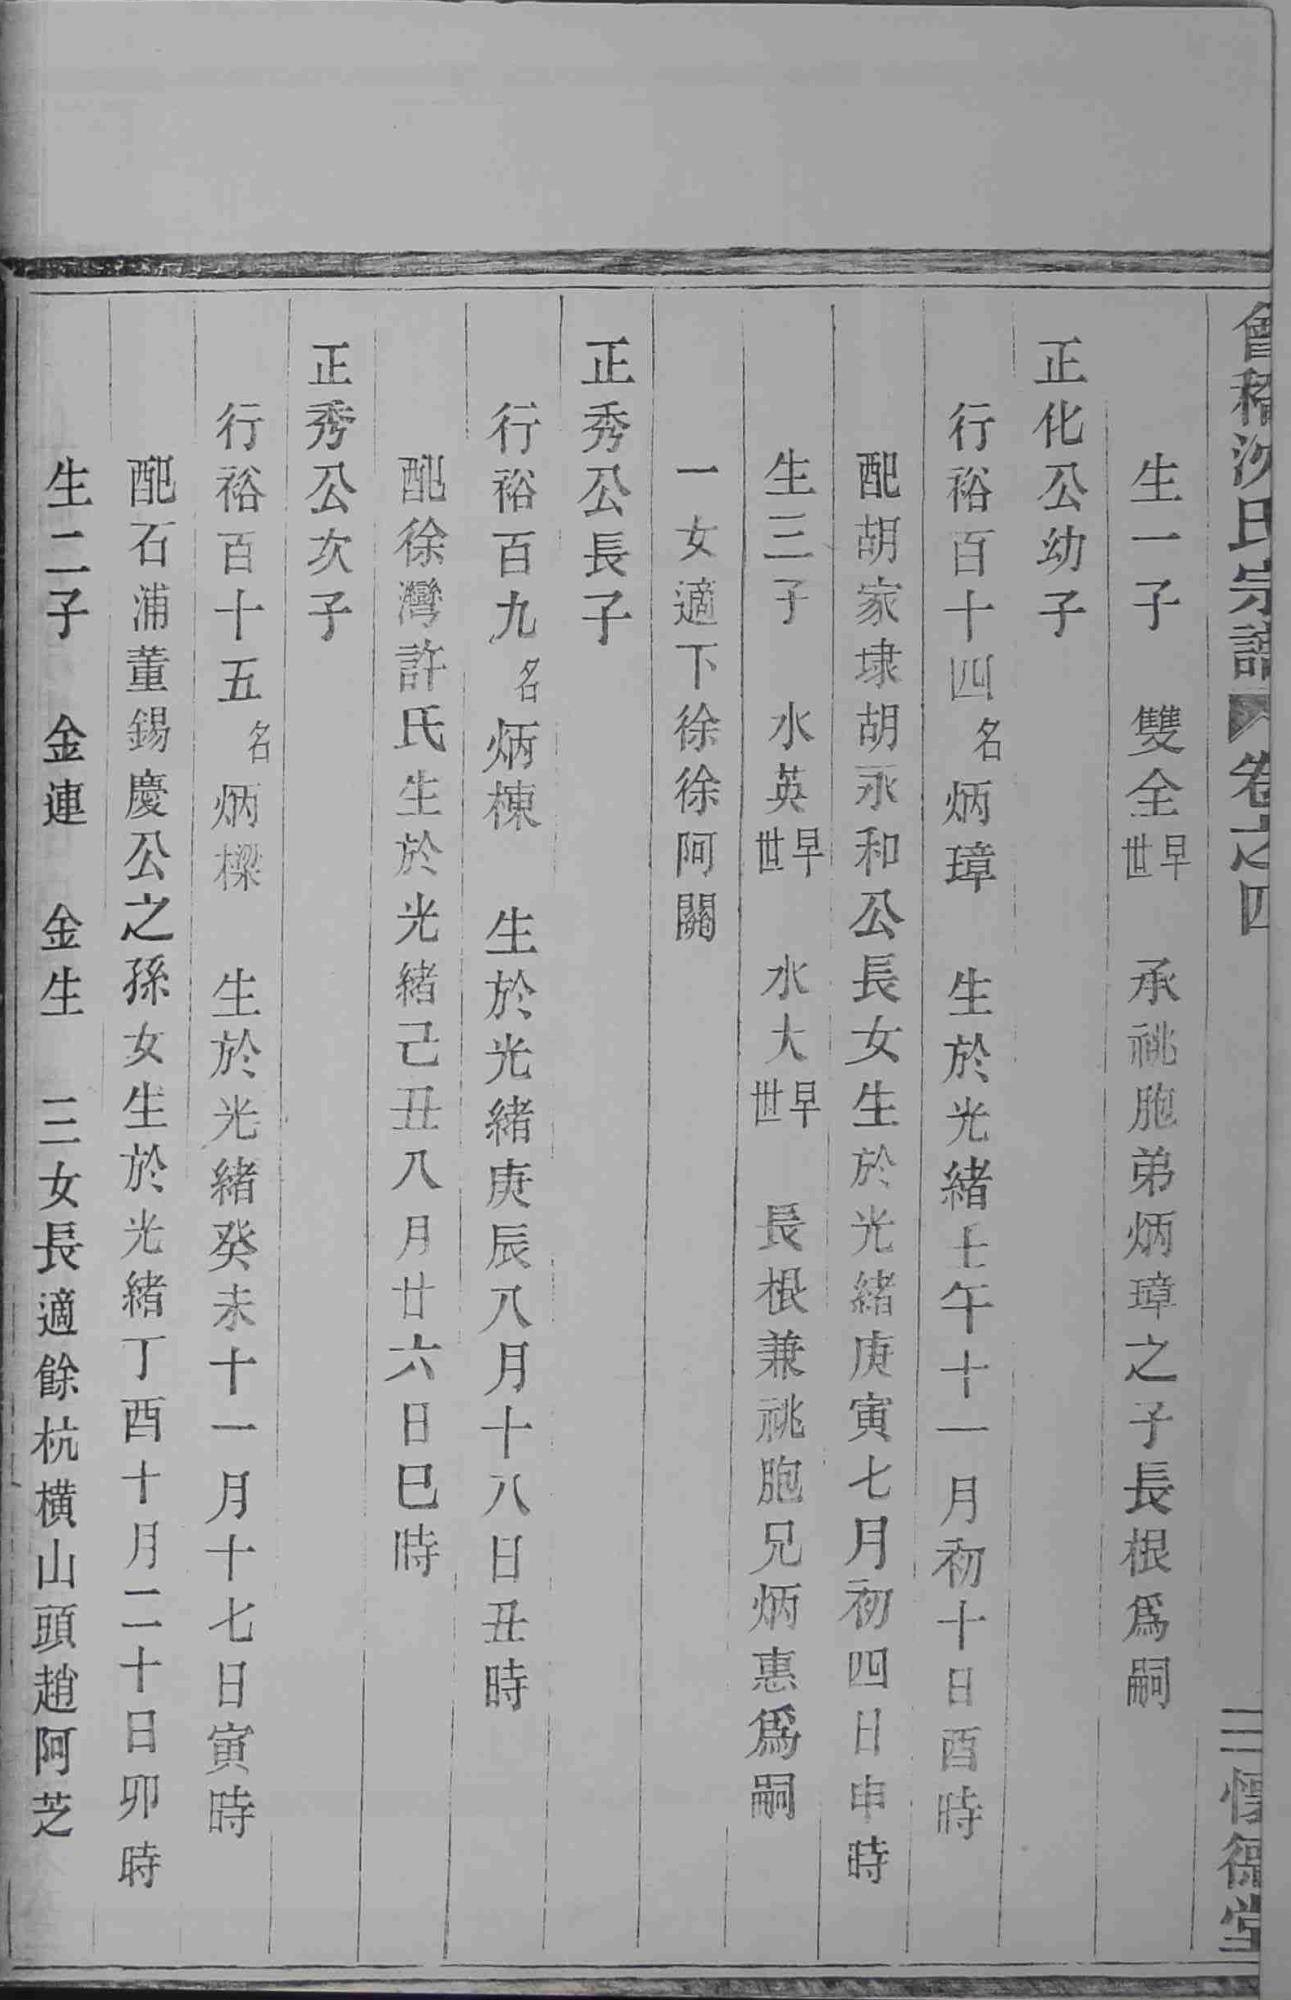 會稽沈氏宗譜 卷之四 三 懷德堂
生一子 雙全早世 承祧胞弟炳璋之子長根爲嗣
正化公幼子
行裕百十四名炳璋 生於光緒壬午十一月初十日酉時
配胡家埭胡永和公長女生於光緒庚寅七月初四日申時
生三子 水英早世 水大早世 長根兼祧胞兄炳惠爲嗣
一女適下徐徐阿關
正秀公長子
行裕百九名炳棟 生於光緒庚辰八月十八日丑時
配徐灣許氏生於光緒己丑八月廿六日巳時
正秀公次子
行裕百十五名炳樑 生於光緒癸未十一月十七日寅時
配石浦董錫慶公之孫女生於光緒丁酉十月二十日卯時
生二子 金連 金生 三女長適餘杭橫山頭趙阿芝